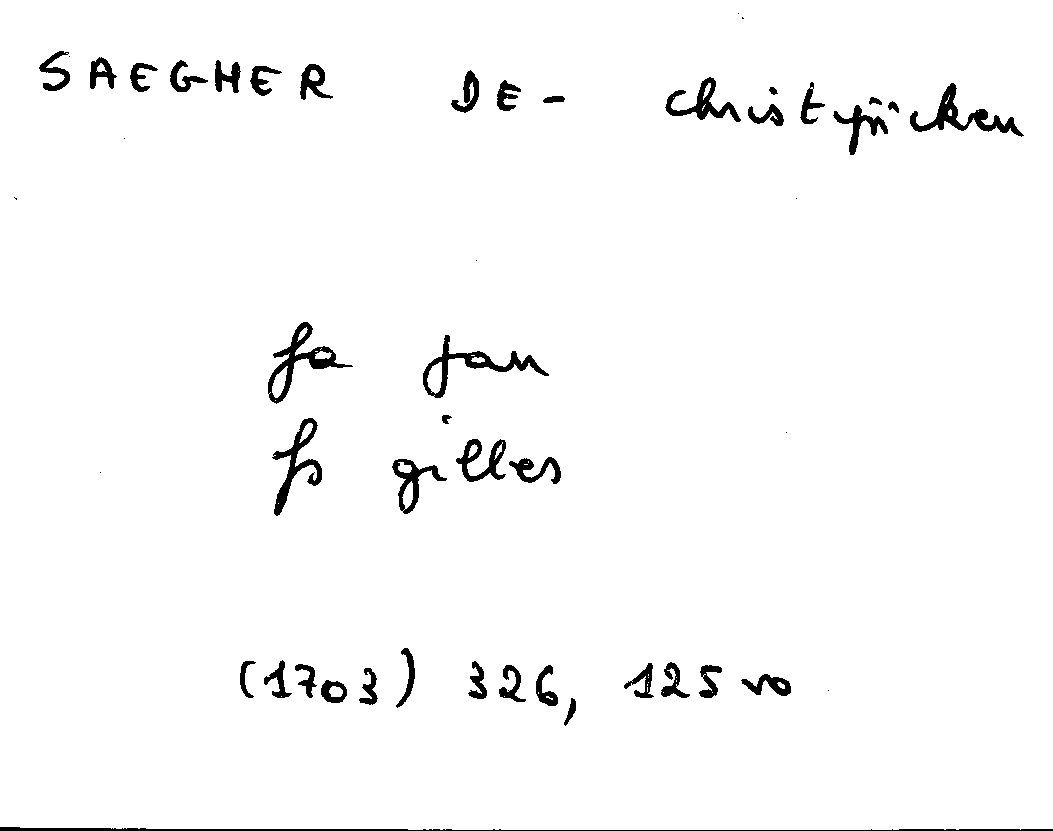 SAEGHER DE - Christyncken
fa Jan
fs gilles
(1703) 326, 125 vo